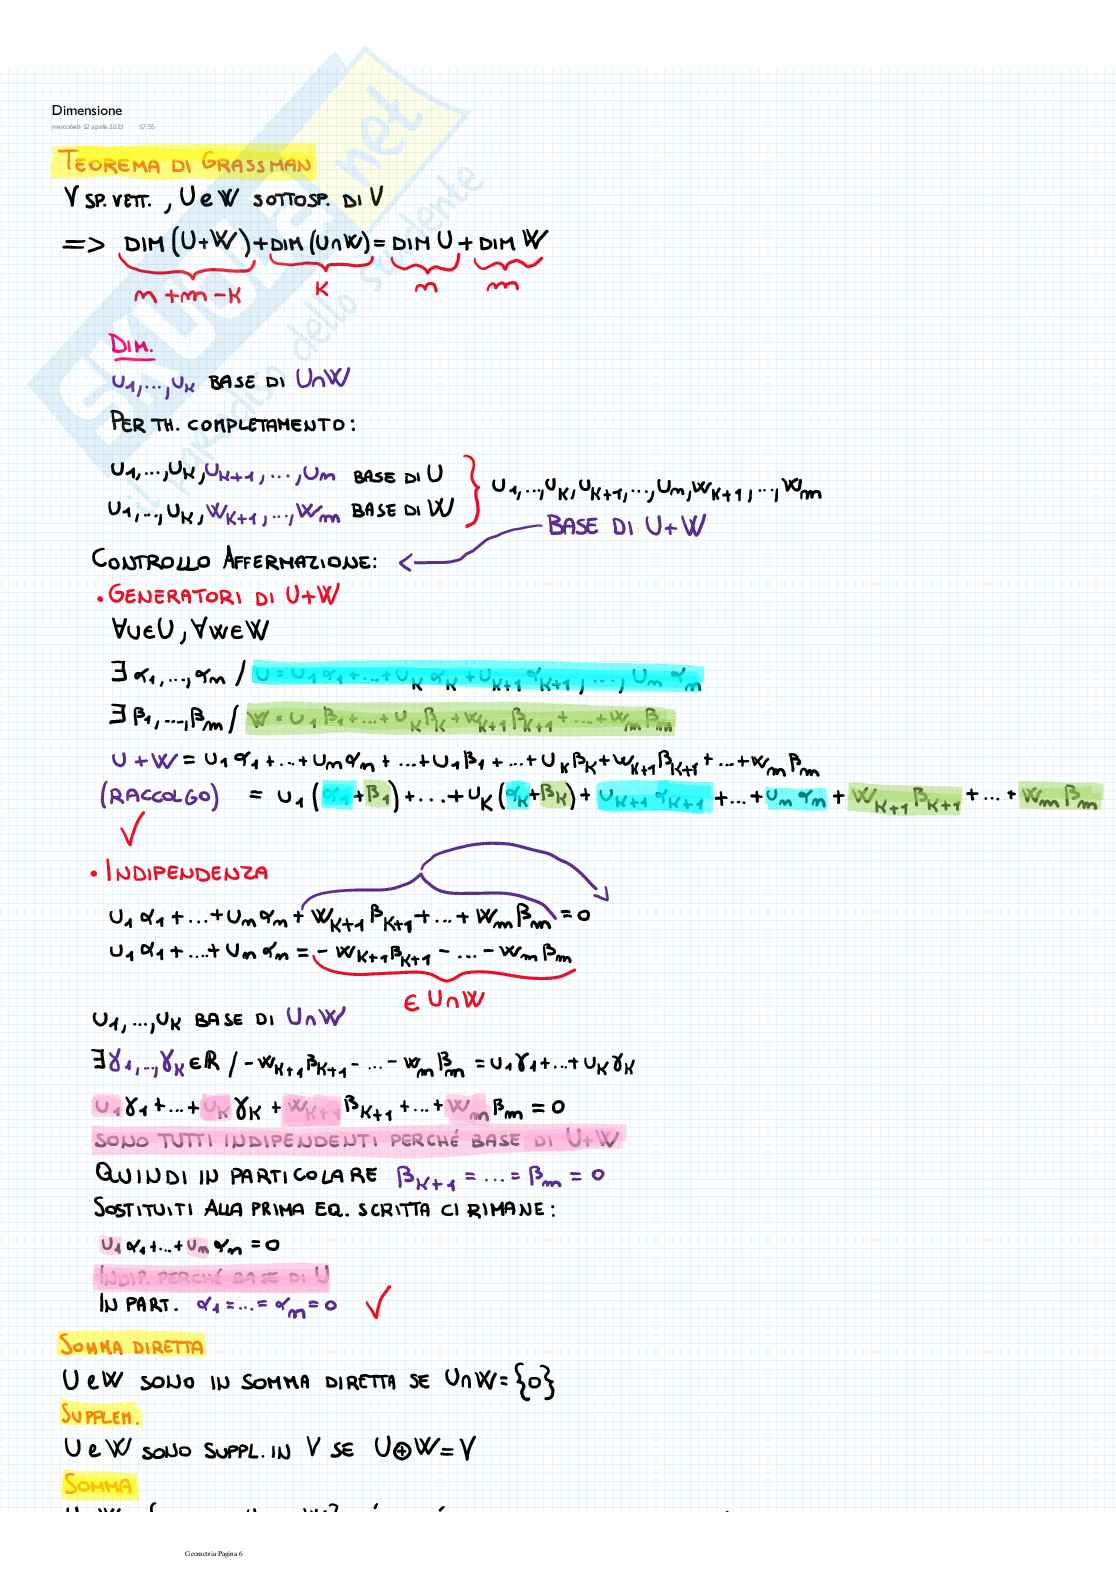 Dimensione
mercoledì 12 aprile 2023 17:55
TEOREMA DI GRASSMAN
V SP. VETT. , U e W SOTTOSP. DI V
=> DIM (U+W) + DIM (U∩W) = DIM U + DIM W
n + m - k k n m
DIM.
u1,...,uk BASE DI U∩W
PER TH. COMPLETAMENTO:
u1,...,uk,uk+1,...,un BASE DI U
u1,...,uk,uk+1,...,un,wk+1,...,wm
u1,...,uk,wk+1,...,wm BASE DI W
BASE DI U+W
CONTROLLO AFFERMAZIONE:
• GENERATORI DI U+W
∀u∈U, ∀w∈W
∃ α1,...,αn / U = u1 α1 +...+ uk αk + uk+1 αk+1, ..., un αn
∃ β1,...,βm / W = u1 β1 +...+ uk βk + wk+1 βk+1 + ... + wm βm
U + W = u1 α1 + ... + un αn + ... + u1 β1 + ... + uk βk + wk+1 βk+1 + ... + wm βm
(RACCOLGO) = u1 (α1+β1) + ... + uk (αk+βk) + uk+1 αk+1 + ... + un αn + wk+1 βk+1 + ... + wm βm
✓
• INDIPENDENZA
u1 α1 + ... + un αn + wk+1 βk+1 + ... + wm βm = 0
u1 α1 + ... + un αn = - wk+1 βk+1 - ... - wm βm
∈ U∩W
u1,...,uk BASE DI U∩W
∃ γ1,..,γk ∈ ℝ / - wk+1 βk+1 - ... - wm βm = u1 γ1 + ... + uk γk
u1 γ1 + ... + uk γk + wk+1 βk+1 + ... + wm βm = 0
SONO TUTTI INDIPENDENTI PERCHÉ BASE DI U+W
QUINDI IN PARTICOLARE βk+1 = ... = βm = 0
SOSTITUITI ALLA PRIMA EQ. SCRITTA CI RIMANE:
u1 α1 + ... + un αn = 0
INDIP. PERCHÉ BASE DI U
IN PART. α1 = ... = αn = 0 ✓
SOMMA DIRETTA
U e W SONO IN SOMMA DIRETTA SE U∩W = {0}
SUPPLEM.
U e W SONO SUPPL. IN V SE U⊕W = V
SOMMA
Geometria Pagina 6
SKUOLA.net
il paradiso dello studente